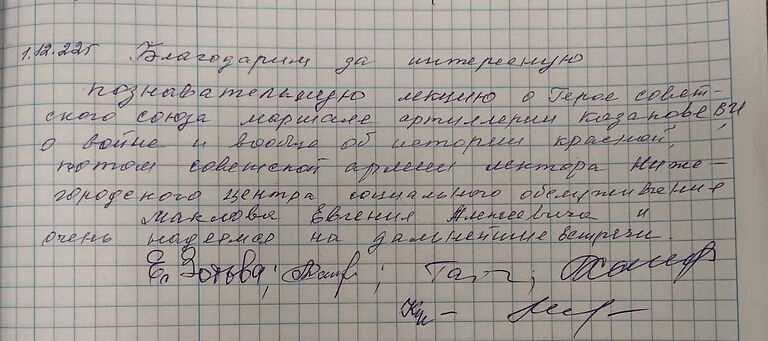 1.12.22г Благодарим за интересную
познавательную лекцию о Герое совет-
ского союза маршале артиллерии Казакове ВИ
о войне и вообще об истории красной,
потом советской армии лектора Ниже-
городского центра социального обслуживания
Маслова Евгения Алексеевича и
очень надеемся на дальнейшие встречи.
Е. Зотова;